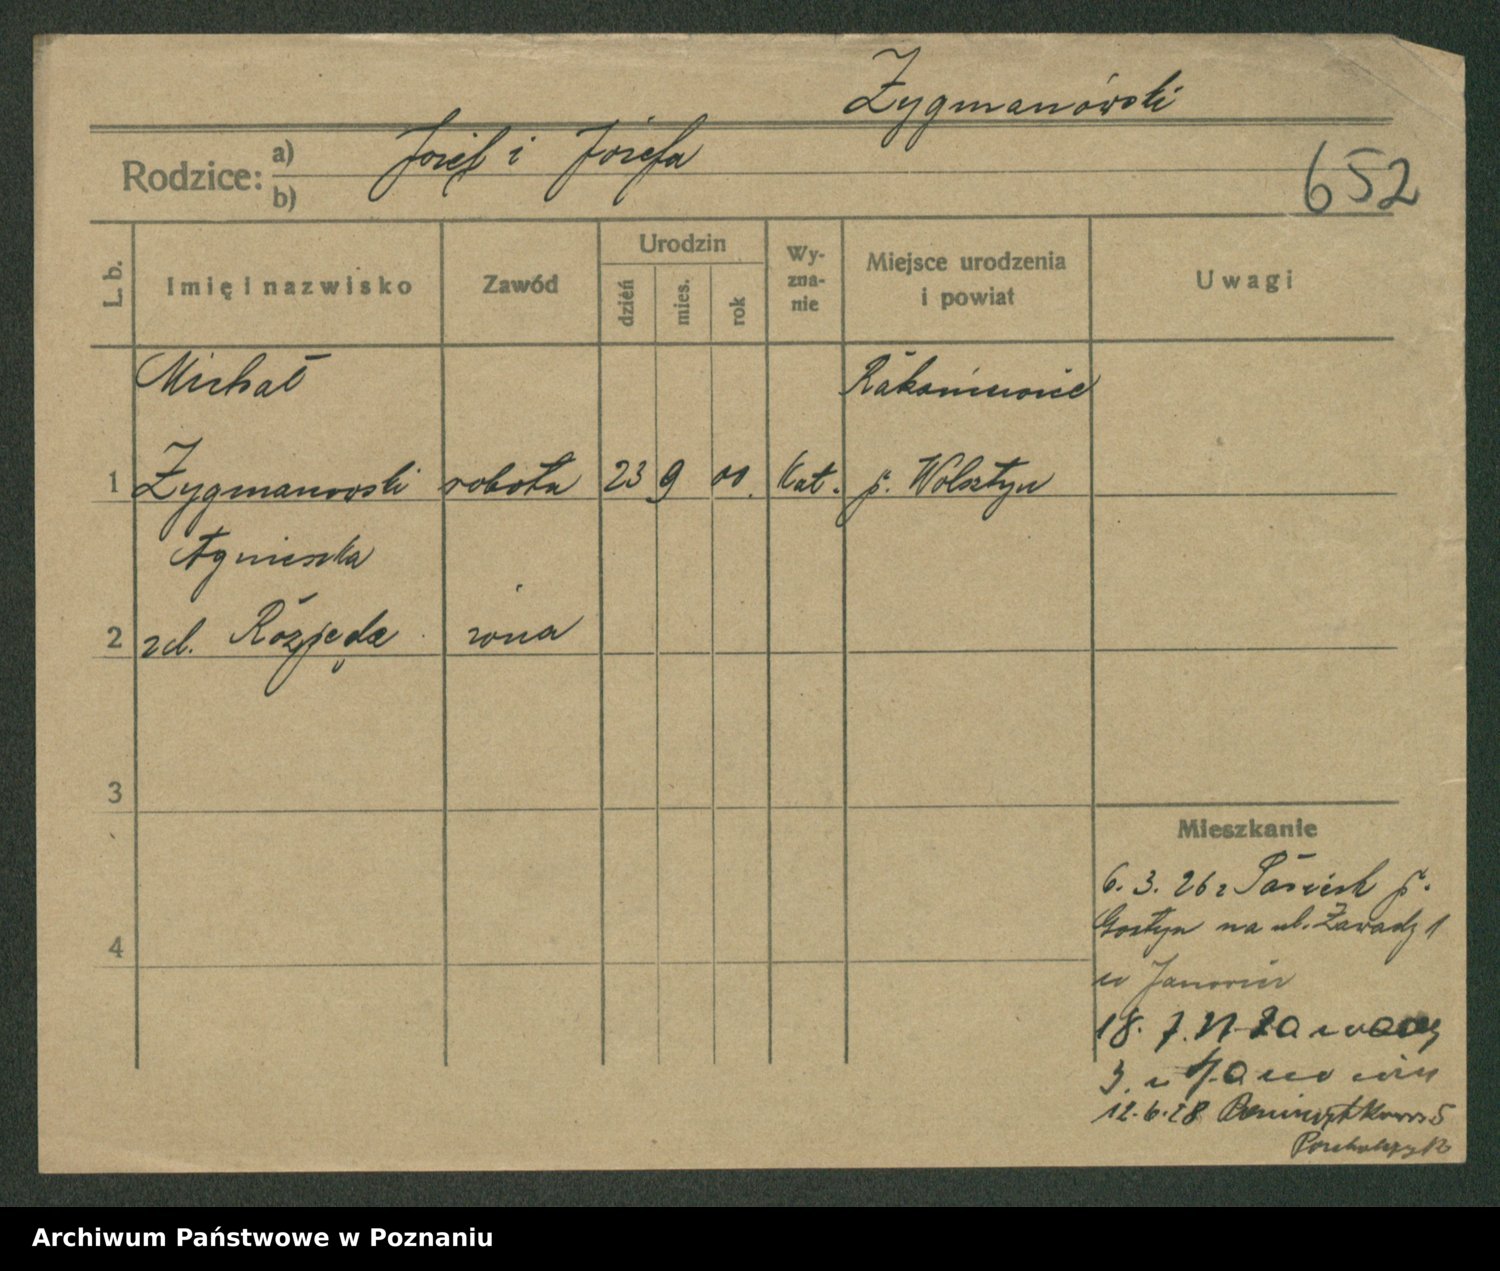 Zygmanówski
Rodzice: a) Józef i Józefa
b)
652
L. b.
Imię i nazwisko
Zawód
Urodzin
dzień
mies.
rok
Wy-
zna-
nie
Miejsce urodzenia
i powiat
Uwagi
Michał
Rakoniewice
1 Zygmanowski robotn 23 9 00. kat. p. Wolsztyn
Agnieszka
2 zd. żona
3
4
Mieszkanie
6. 3. 26 z p.
Gostyn na ul. Zawady 1
u
18. 7.
3. u
12.6.28 5
Archiwum Państwowe w Poznaniu